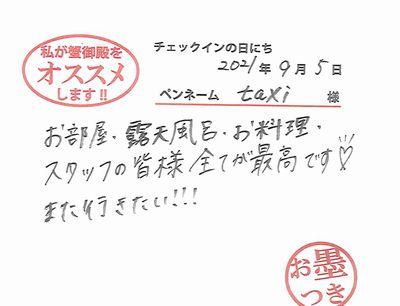 私が蟹御殿を
オススメ
します!!
チェックインの日にち
2021年9月5日
ペンネーム taxi 様
お部屋・露天風呂・お料理・
スタッフの皆様全てが最高です♡
また行きたい!!!
お墨
つき